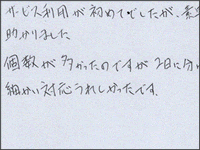 サービス利用が初めてでしたが、素
助かりました
個数が多かったのですが2日に分
細かい対応うれしかったです。